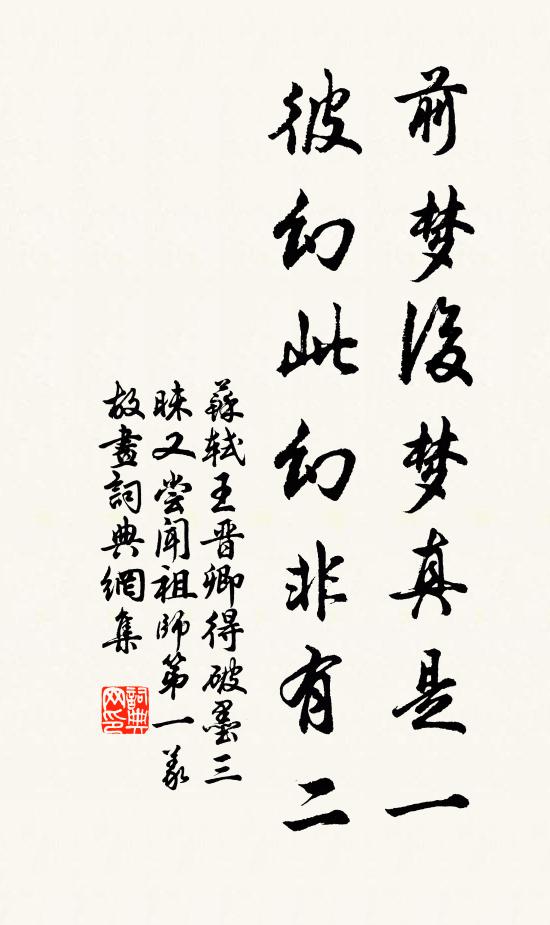 前梦後梦真是一
彼幻此幻非有二
蘇軾王晋卿得破墨三
昧又尝闻祖師第一義
故畫詞典網集
詞典网印